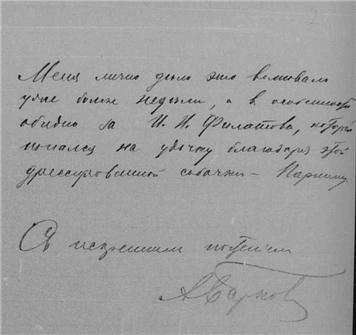 Меня лично дело это волновало
уже более недели, а в особенности
обидно за И. И. Филатова, который
попался на удочку благодаря этой
дрессированной собачки – Паркину
Съ искренним почтеніем